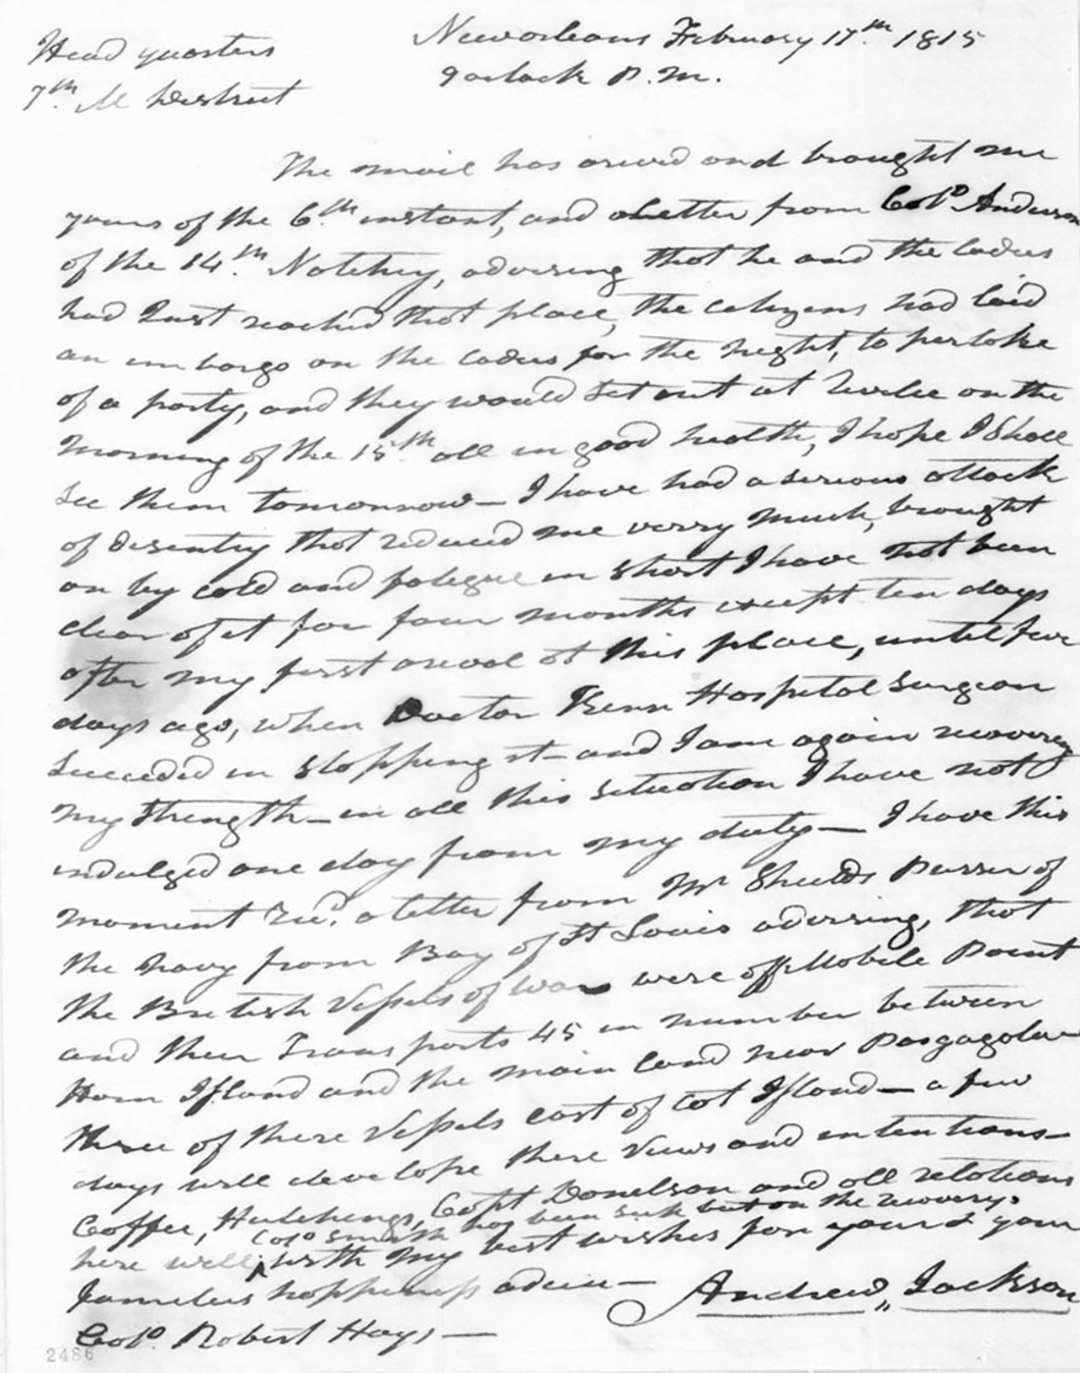 Head quarters
7th. M District
Neworleans February 17th. 1815
9 oclock P.M.
The mail has arived and brought me
yours of the 6th. instant, and a letter from Colo Anderson
of the 14th. Natchey, advising that he and the ladies
had Just reached that place, the citizens had laid
an imbargo on the ladies for the night, to pertake
of a party, and they would set out at twelve on the
morning of the 15th. all in good health, I hope I shall
see them tomorrow— I have had a serious attack
of disentry that reduced me verry much, brought
on by cold and fatigue in short I have not been
clear of it for four months except ten days
after my first arival at this place, until few
days ago, when Doctor Kerr Hospital Surgeon
succeeded in stopping it— and I am again recovering
my strength— in all this situation I have not
indulged one day from my duty— I have this
moment recd. a letter from Mr Shields Purser of
the navy from Bay of St Louis advising, that
the British Vessels of war were off Mobile Point
and their Transports 45 in number between
Horn Island and the main land near Pasgagola
three of there Vessels east of Cat Island— a few
days will develope there views and intentions—
Coffee, Hutchings, Capt Donelson and all relations
Colo Smith has been sick but on the recovery,
here well, with my best wishes for your & your
families happiness adieu—
Andrew Jackson
Colo. Robert Hays—
2486